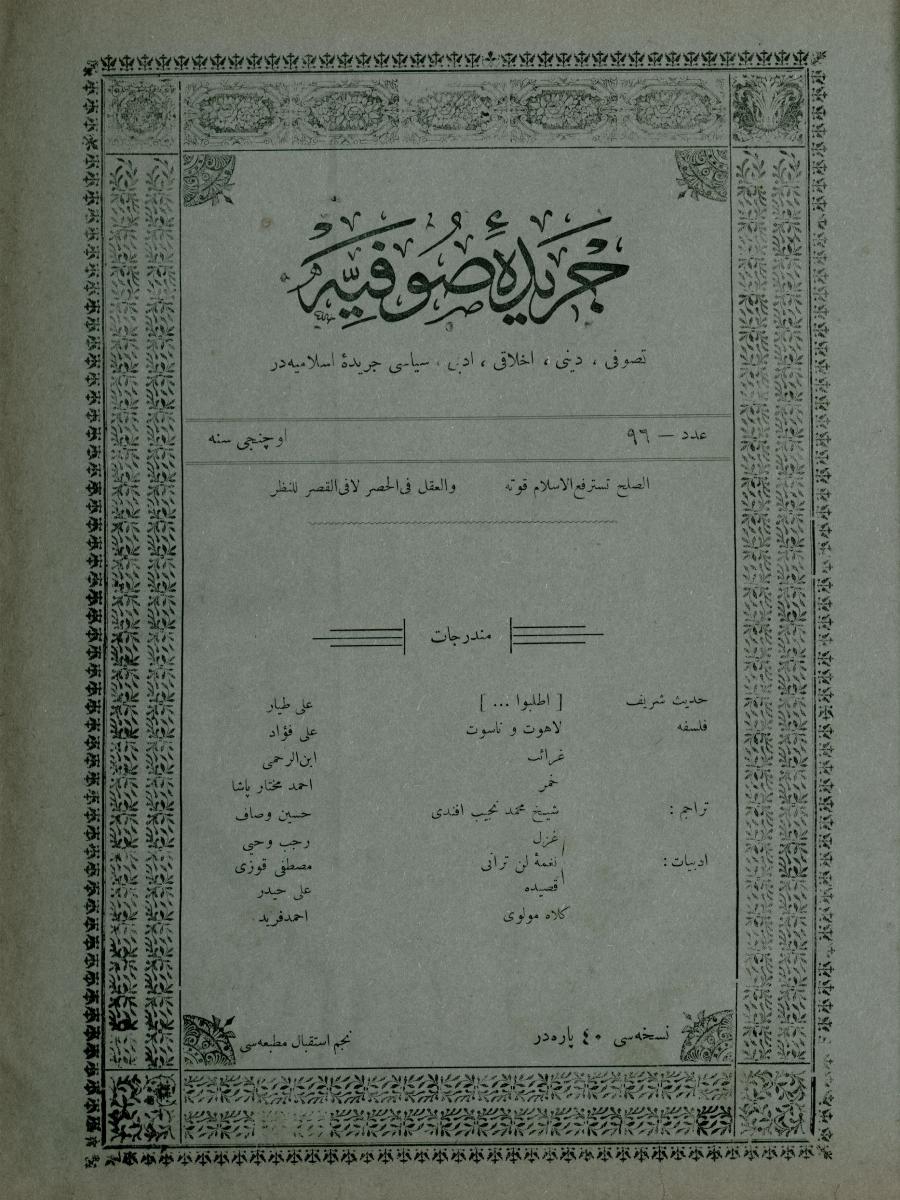 جريدهٔ صوفيه
تصوفى ، دينى ، اخلاقى ، ادبى ، سياسى جريدهٔ اسلاميه‌در
عدد — ٩٦ اوچنجى سنه
الصلح تسترفع الاسلام قوته والعقل فى الحصر لا فى القصر للنظر
مندرجات
حديث شريف [ اطلبوا ... ] على طيار
فلسفه لاهوت و ناسوت على فؤاد
غرائب ابن الرحمى
خمر احمد مختار پاشا
تراجم : شيخ محمد نجيب افندى حسين وصاف
غزل رجب وحيى
ادبيات : نغمهٔ لن ترانى مصطفى فوزى
قصيده على حيدر
كلاه مولوى احمد فريد
نسخه‌سى ٤٠ پاره‌در نجم استقبال مطبعه‌سى